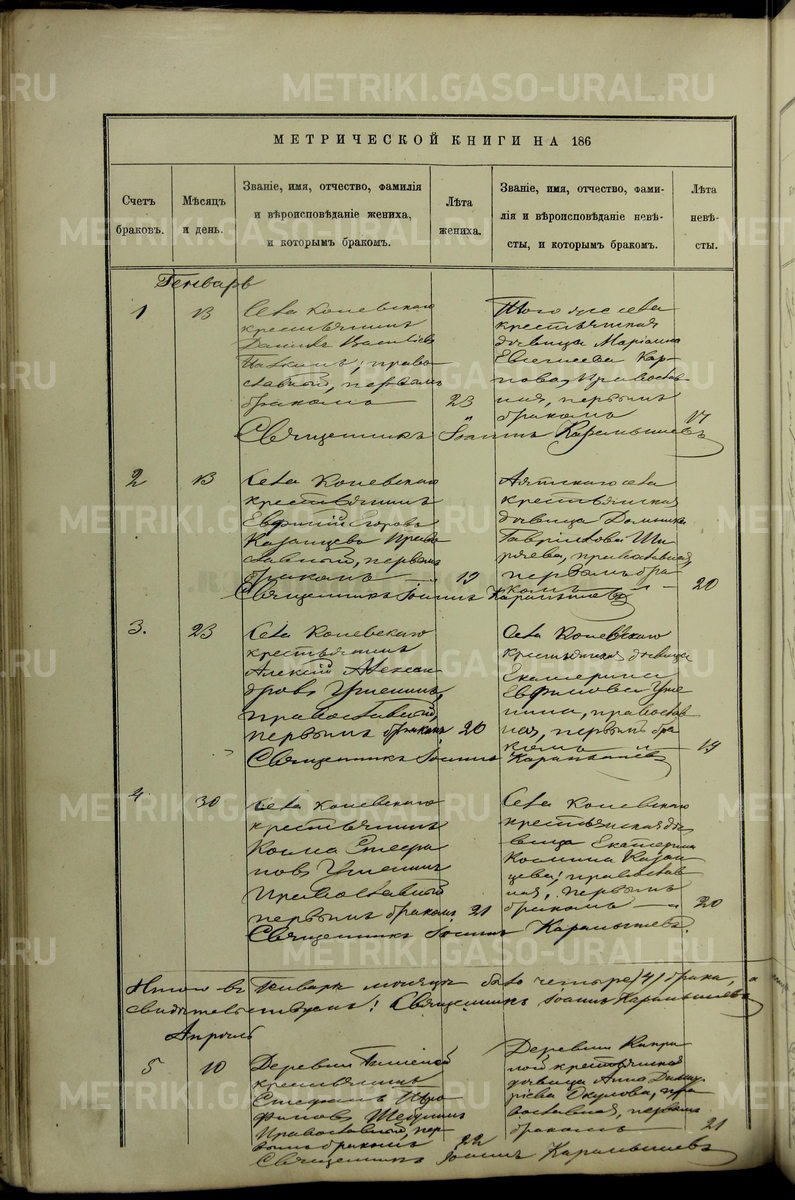 МЕТРИЧЕСКОЙ КНИГИ НА 186
Счетъ браковъ.
Мѣсяцъ и день.
Званіе, имя, отчество, фамилія
и вѣроисповѣданіе жениха,
и которымъ бракомъ.
Лѣта жениха.
Званіе, имя, отчество, фами-
лія и вѣроисповѣданіе невѣ-
сты, и которымъ бракомъ.
Лѣта невѣ-
сты.
Генварь
1
13
Села Коневскаго
крестьянинъ
Даніилъ Василіевъ
право
славный, первымъ
бракомъ
23
Того же села
крестьянская
дѣвица Маріамна
Евгеніева Кар-
пова, Православ
ная, первымъ
бракомъ
17
Священникъ Іоаннъ Карамышевъ
2
13
Села Коневскаго
крестьянинъ
Евфимій Егоровъ
Казанцевъ Право
славный, первымъ
бракомъ
19
Аятскаго села
крестьянская
дѣвица Домника
Гаврилова Ши
ряева, православная,
первымъ бра-
комъ
20
Священникъ Іоаннъ Карамышевъ
3.
23
Села Коневскаго
крестьянинъ
Алексій Алексан
дровъ Угненинъ,
православный,
первымъ бракомъ
20
Села Коневскаго
крестьянская дѣвица
Екатерина
Евфимова Угне
нина, православ
ная, первымъ бра
комъ
19
Священникъ Іоаннъ Карамышевъ
4.
30
Села Коневскаго
крестьянинъ
Косма Стефа
новъ Угненинъ
Православный
первымъ бракомъ.
21
Села Коневскаго
крестьянская дѣ
вица Екатерина
Космина Казан
цева, православ
ная, первымъ
бракомъ
20
Священникъ Іоаннъ Карамышевъ.
Итого въ Генварѣ мѣсяцѣ было четыре /4/ брака,
свидѣтельствуемъ: Священникъ Іоаннъ Карамышевъ
Апрѣль
5
10
Деревни
крестьянинъ
Стефанъ
Православный, пер-
вымъ бракомъ
22
Деревни Кипри
ной крестьянская
дѣвица Анна Димит
ріева Окулова, пра
вославная, первымъ
бракомъ
21
Священникъ Іоаннъ Карамышевъ
METRIKI.GASO-URAL.RU